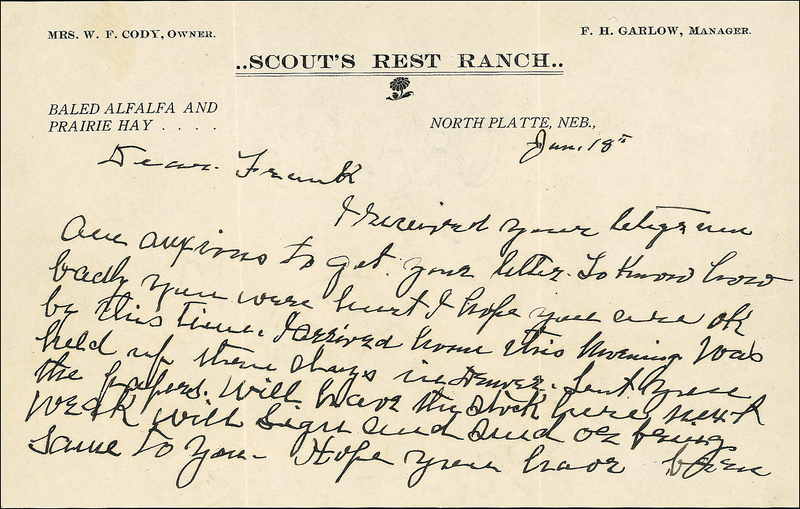 MRS. W. F. CODY, OWNER.
F. H. GARLOW, MANAGER.
..SCOUT'S REST RANCH..
BALED ALFALFA AND
PRAIRIE HAY . . . .
NORTH PLATTE, NEB.,
Jan. 18th
Dear Frank
I received your telegram
am anxious to get your letter. To Know how
badly you were hurt I hope you are ok
by this time. I arrived home this morning was
held up three days in Denver. Sent you
the papers. Will have the stock here next
week will sign and send or bring
same to you- Hope you have been